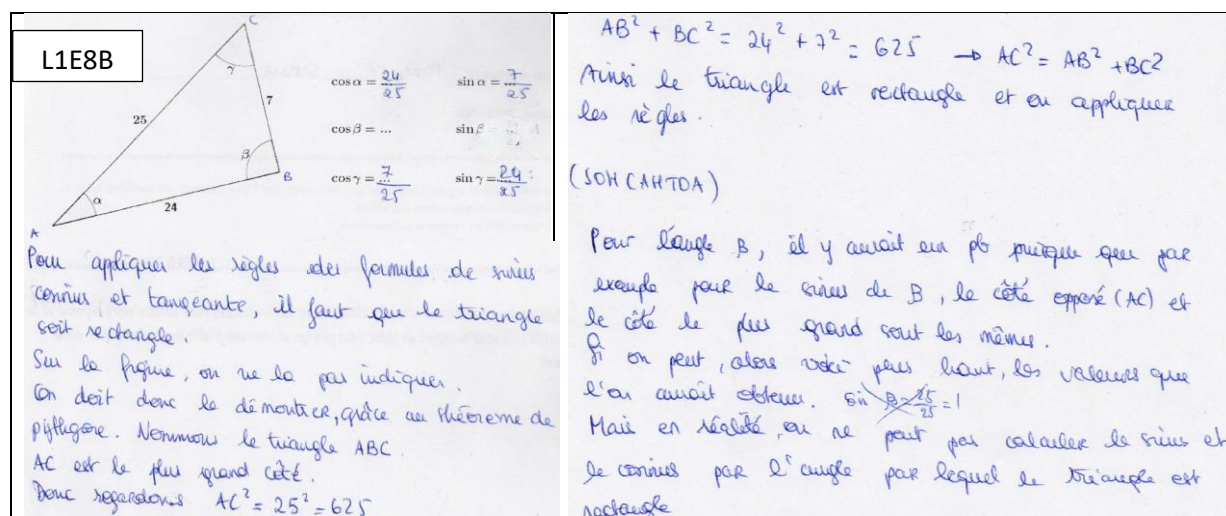 L1E8B
C
γ
25
7
β
B
α
24
A
cos α = 24/25 sin α = 7/25
cos β = ... sin β
cos γ = 7/25 sin γ = 24/25
Pour appliquer les règles des formules de sinus
cosinus et tangeante, il faut que le triangle
soit rectangle.
Sur la figure, on ne la pas indiquer.
On doit donc le démontrer, grâce au théoreme de
pythagore. Nommons le triangle ABC.
AC est le plus grand côté.
Donc regardons AC² = 25² = 625
AB² + BC² = 24² + 7² = 625 → AC² = AB² + BC²
Ainsi le triangle est rectangle et on appliquer
les règles.
(SOH CAH TOA)
Pour l'angle B, il y aurait un pb puisque que par
exemple pour le sinus de B, le côté opposé (AC) et
le côté le plus grand sont les mêmes.
Si on peut, alors voici plus haut, les valeurs que
l'on aurait obtenu. sin B = 25/25 = 1
Mais en réalité, on ne peut pas calculer le sinus et
le cosinus par l'angle par lequel le triangle est
rectangle